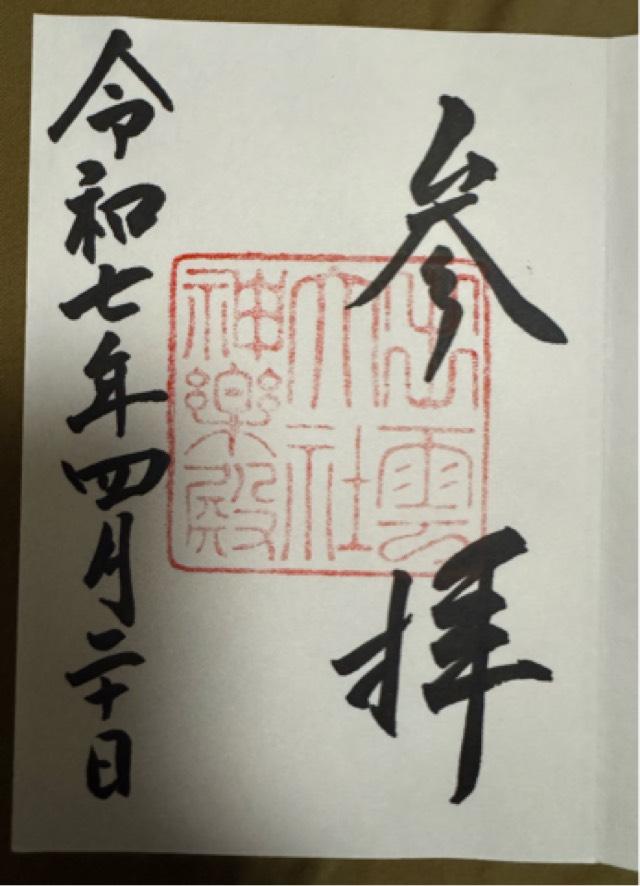 参拝
出雲
大社
神楽殿
令和七年四月二十日